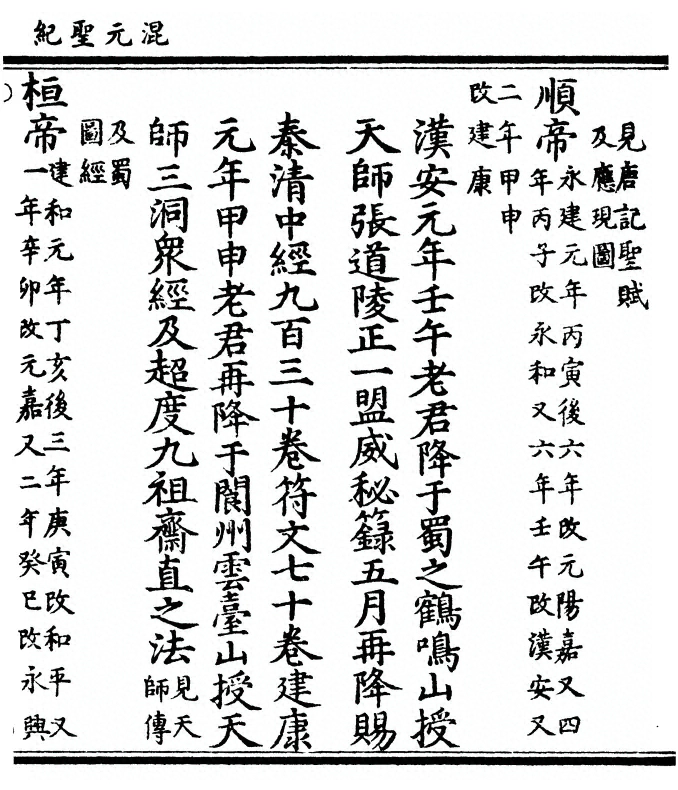 混元聖紀
見唐記聖賦
及應現圖
順帝永建元年丙寅後六年改元陽嘉又四
年丙子改永和又六年壬午改漢安又
二年甲申
改建康
漢安元年壬午老君降于蜀之鶴鳴山授
天師張道陵正一盟威秘籙五月再降賜
泰清中經九百三十卷符文七十卷建康
元年甲申老君再降于閬州雲臺山授天
師三洞眾經及超度九祖齋直之法見天
師傳
及蜀
圖經
桓帝建和元年丁亥後三年庚寅改和平又
一年辛卯改元嘉又二年癸巳改永興